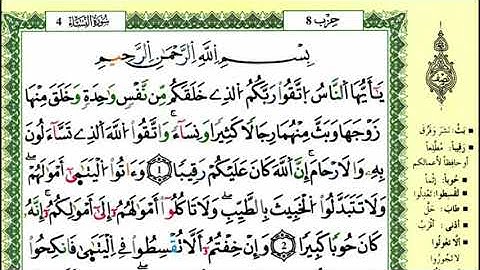 حِزْب 8
سُورَةُ النِّسَاءِ 4
بِسْمِ اِ۬للَّهِ اِ۬لرَّحْمَٰنِ اِ۬لرَّحِيمِ
يَٰٓأَيُّهَا اَ۬لنَّاسُ اُ۪تَّقُواْ رَبَّكُمُ اُ۬لذِے خَلَقَكُم مِّن نَّفْسٖ وَٰحِدَةٖ وَخَلَقَ مِنْهَا
زَوْجَهَا وَبَثَّ مِنْهُمَا رِجَالاٗ كَثِيراٗ وَنِسَآءٗۖ وَاتَّقُواْ اُ۬للَّهَ اَ۬لذِے تَسَّآءَلُونَ
بِهِۦ وَالَارْحَامَۖ إِنَّ اَ۬للَّهَ كَانَ عَلَيْكُمْ رَقِيباٗۖ 1 وَءَاتُواْ اُ۬لْيَتَٰمَىٰٓ أَمْوَٰلَهُمْۖ
وَلَا تَتَبَدَّلُواْ اُ۬لْخَبِيثَ بِالطَّيِّبِۖ وَلَا تَاكُلُوٓاْ أَمْوَٰلَهُمُۥٓ إِلَىٰٓ أَمْوَٰلِكُمُۥٓۖ إِنَّهُۥ
كَانَ حُوباٗ كَبِيراٗۖ 2 وَإِنْ خِفْتُمُۥٓ أَلَّا تُقْسِطُواْ فِے اِ۬لْيَتَٰمَىٰ فَانكِحُواْ
بَثَّ: نَشَرَ وَفَرَّقَ
رَقِيباً: مُطَّلِعاً
أو حافظاً لأعمالكم
حُوباً: إثماً
تُقْسِطُوا: تَعْدِلُوا
طَابَ: حَلَّ
أَدْنَى: أَقْرَبُ
أَلَّا تَعُولُوا
لا تَجُورُوا